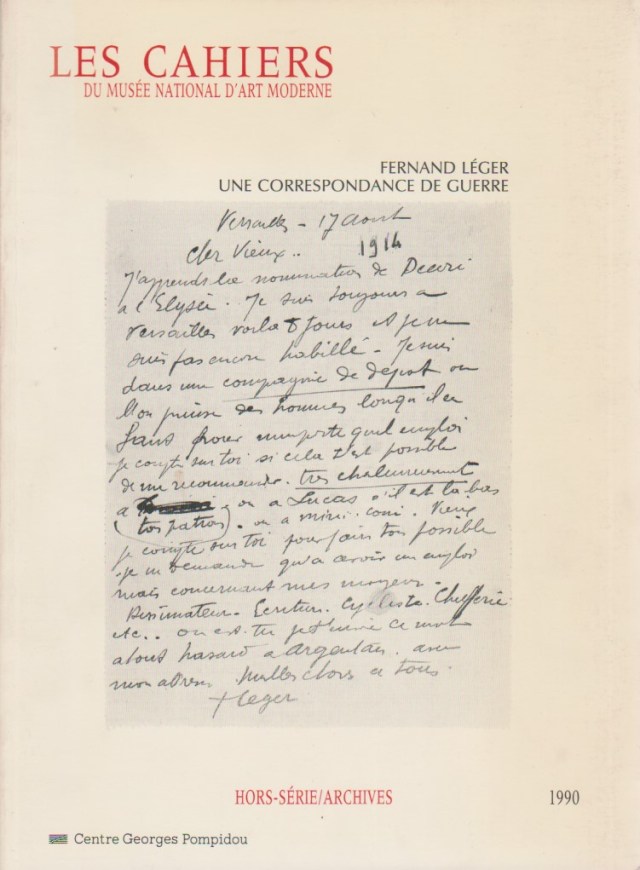 LES CAHIERS
DU MUSÉE NATIONAL D'ART MODERNE
FERNAND LÉGER
UNE CORRESPONDANCE DE GUERRE
Versailles - 17 Aout
1914
Cher Vieux..
J'apprends la nomination de
a l'Elysée. Je suis toujours a
Versailles voila 8 jours et je ne
suis pas encore habillé - Je suis
dans une compagnie de dépot ou
l'on puise des hommes lorsqu'il en
faut pour n'importe quel emploi
je compte sur toi si cela t'est possible
de me recommander. très chaleureusement
a ou a Lucas s'il est la bas
(ton patron). ou a
je compte sur toi pour faire ton possible
je ne demande qu'a avoir un emploi
mais concernant mes moyens.
Dessinateur. Ecriture. Cycliste.
etc.. Ou es-tu je t'envoie ce mot
a tout hasard a Argentan. avec
mon adresse. choses a tous.
FLeger
HORS-SÉRIE/ARCHIVES
1990
Centre Georges Pompidou